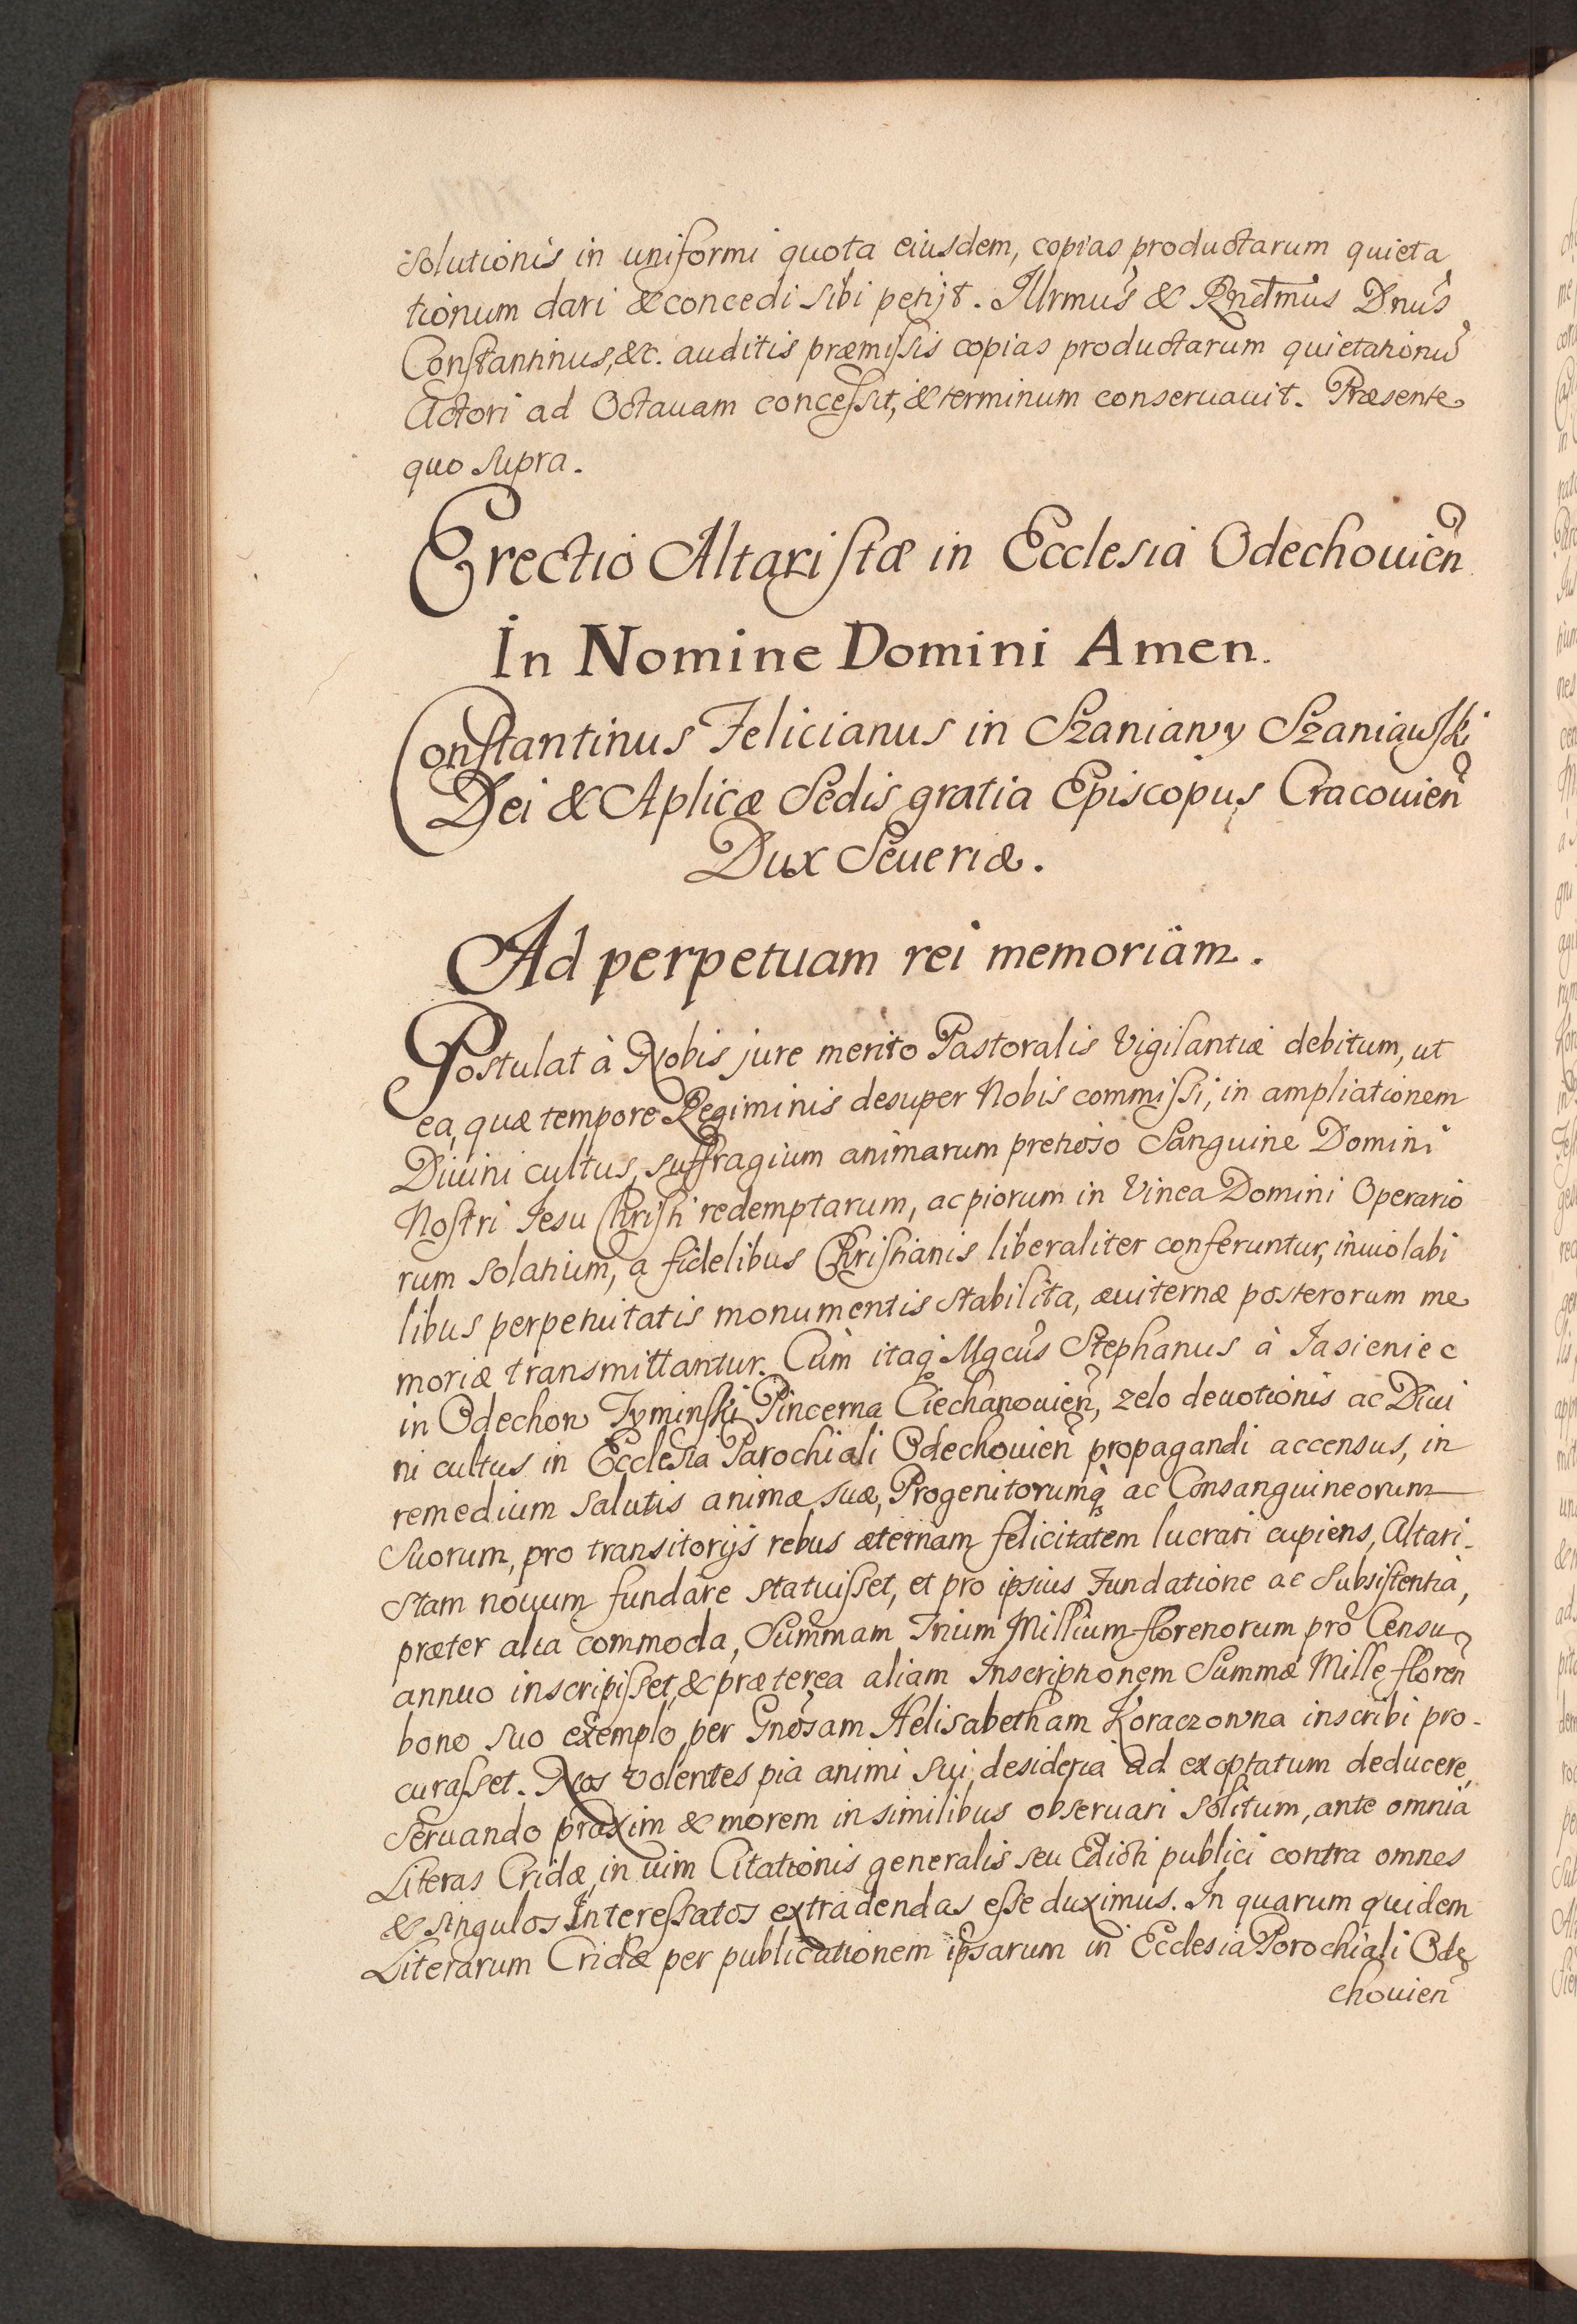 solutionis in uniformi quota eiusdem, copias productarum quieta
tionum dari & concedi sibi petijt. Illrmus & Rndmus Dnus
Constantinus, &c. auditis præmissis copias productarum quietationū
Actori ad Octauam concessit, & terminum conseruauit. Præsente
quo supra.
Erectio Altaristæ in Ecclesia Odechouien
In Nomine Domini Amen.
Constantinus Felicianus in Szaniawy Szaniawski
Dei & Aplicæ Sedis gratia Episcopus Cracouien
Dux Seueriæ.
Ad perpetuam rei memoriam.
Postulat à Nobis jure merito Pastoralis Vigilantiæ debitum, ut
ea, quæ tempore Regiminis desuper Nobis commissi, in ampliationem
Diuini cultus, suffragium animarum pretioso Sanguine Domini
Nostri Iesu Christi redemptarum, ac piorum in Vinea Domini Operario
rum solatium, a fidelibus Christianis liberaliter conferuntur, inuiolabi
libus perpetuitatis monumentis stabilita, æuiternæ posterorum me
moriæ transmittantur. Cùm itaq Mgcus Stephanus à Jasieniec
in Odechow Tyminski Pincerna Ciechanouien, zelo deuotionis ac Diui
ni cultus in Ecclesia Parochiali Odechouien propagandi accensus, in
remedium salutis animæ suæ, Progenitorumq ac Consanguineorum
Suorum, pro transitorijs rebus æternam felicitatem lucrari cupiens, Altari-
stam nouum fundare statuisset, et pro ipsius Fundatione ac Subsistentia,
præter alia commoda, Summam Trium Millium florenorum pro Censu
annuo inscripisset, & præterea aliam Inscriptionem Summæ Mille floren
bono suo exemplo, per Gnosam Helisabetham Koraczowna inscribi pro-
curasset. Nos volentes pia animi sui desideria ad exoptatum deducere,
Seruando praxim & morem in similibus obseruari solitum, ante omnia
Literas Cridæ, in uim Citationis generalis seu Edicti publici contra omnes
& singulos Interessatos extradendas esse duximus. In quarum quidem
Literarum Cridæ per publicationem ipsarum in Ecclesia Porochiali Ode
chouien